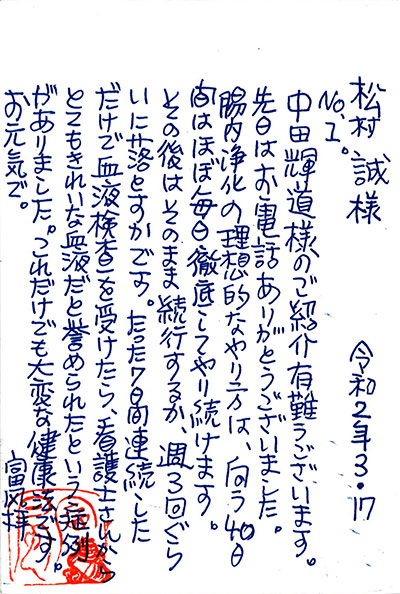 松村 誠様
令和2年3・17
No.1。
中田輝道様のご紹介有難うございます。
先日はお電話ありがとうございました。
腸内浄化の理想的なやり方は、向う40日
間はほぼ毎日徹底してやり続けます。
その後はそのまま続行するか、週3回ぐら
いに落とすかです。たった7日間連続した
だけで血液検査を受けたら、看護士さんから
とてもきれいな血液だと誉められたという症例
がありました。これだけでも大変な健康法です。
お元気で。
拝